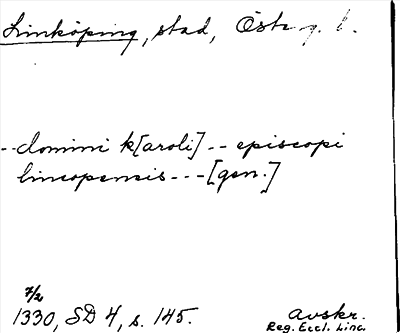 Linköping, stad, Östg. l.
--domini k[aroli] -- episcopi
lincopensis --- [gen.]
7/2
1330, SD 4, s. 145.
Avskr.
Reg. Eccl. Linc.